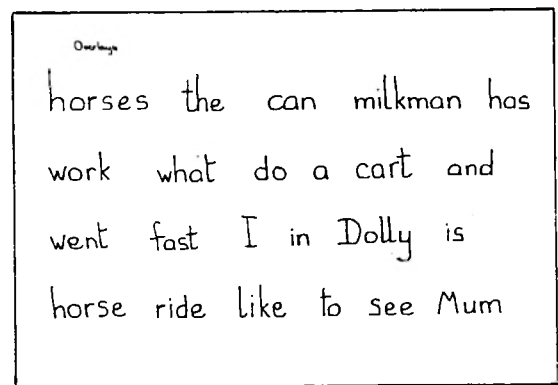 Overlays
horses the can milkman has
work what do a cart and
went fast I in Dolly is
horse ride like to see Mum